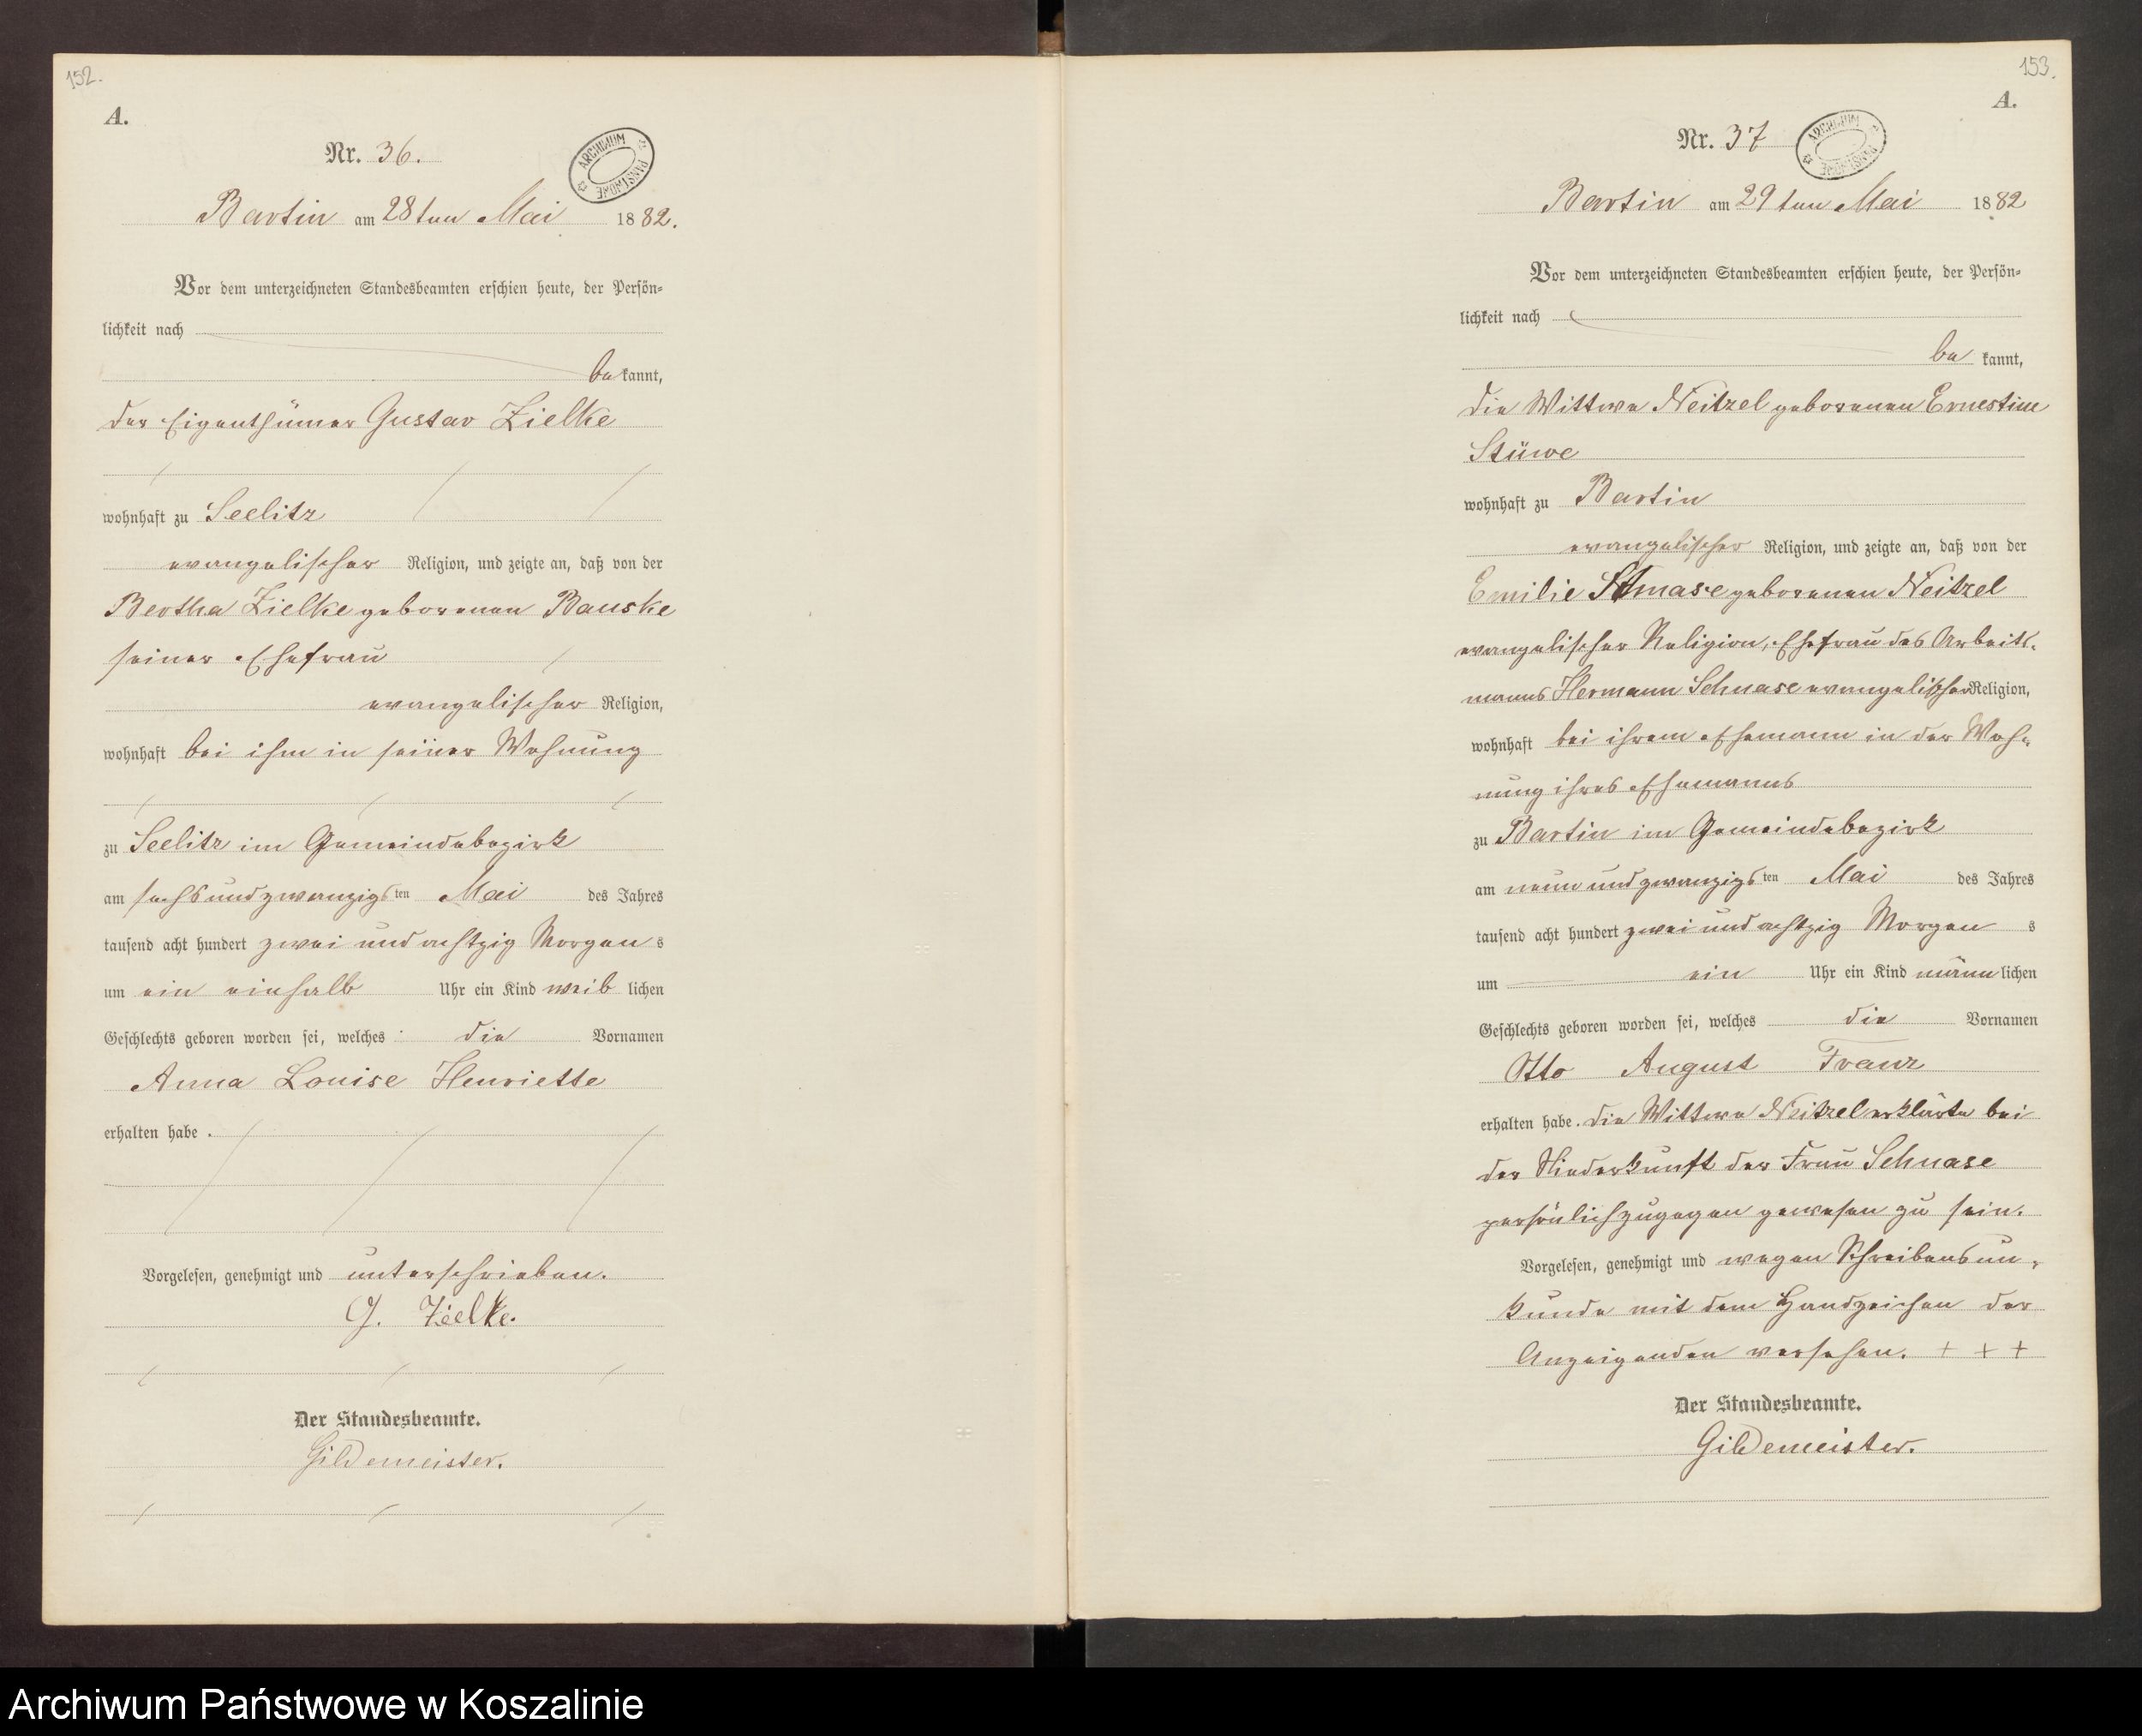 152.
A.
Nr. 36.
ARCHIWUM PAŃSTWOWE
Bartin am 28 ten Mai 1882.
Vor dem unterzeichneten Standesbeamten erschien heute, der Persön-
lichkeit nach
bekannt,
der Eigenthümer Gustav Zielke
wohnhaft zu Seelitz
evangelischer Religion, und zeigte an, daß von der
Bertha Zielke geborenen Bauske
seiner Ehefrau
evangelischer Religion,
wohnhaft bei ihm in seiner Wohnung
zu Seelitz im Gemeindebezirk
am sechsundzwanzigsten Mai des Jahres
tausend acht hundert zwei und achtzig Morgens
um ein einhalb Uhr ein Kind weiblichen
Geschlechts geboren worden sei, welches die Vornamen
Anna Louise Henriette
erhalten habe.
Vorgelesen, genehmigt und unterschrieben.
G. Zielke.
Der Standesbeamte.
Gildemeister.
153.
A.
Nr. 37
ARCHIWUM PAŃSTWOWE
Bartin am 29 ten Mai 1882
Vor dem unterzeichneten Standesbeamten erschien heute, der Persön-
lichkeit nach
bekannt,
die Wittwe Neitzel geborenen Ernestine
Stüwe
wohnhaft zu Bartin
evangelischer Religion, und zeigte an, daß von der
Emilie Schnase geborenen Neitzel
evangelischer Religion, Ehefrau des Arbeits-
manns Hermann Schnase evangelischer Religion,
wohnhaft bei ihrem Ehemann in der Woh-
nung ihres Ehemanns
zu Bartin im Gemeindebezirk
am neun und zwanzigsten Mai des Jahres
tausend acht hundert zwei und achtzig Morgens
um ein Uhr ein Kind männlichen
Geschlechts geboren worden sei, welches die Vornamen
Otto August Franz
erhalten habe. die Wittwe Neitzel erklärte bei
der Niederkunft der Frau Schnase
persönlich zugegen gewesen zu sein.
Vorgelesen, genehmigt und wegen Schreibensun-
kunde mit dem Handzeichen der
Anzeigenden versehen. + + +
Der Standesbeamte.
Gildemeister.
Archiwum Państwowe w Koszalinie